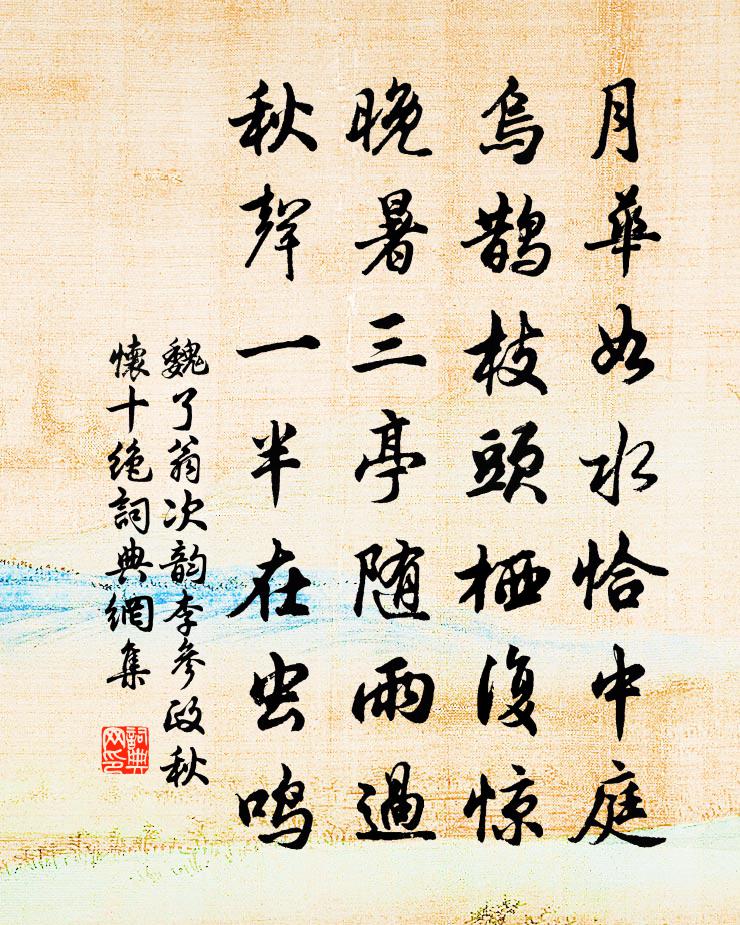 月華如水恰中庭
烏鹊枝頭栖復惊
晚暑三亭随雨過
秋聲一半在虫鸣
魏了翁次韵李參政秋
懷十绝詞典網集
詞典网印